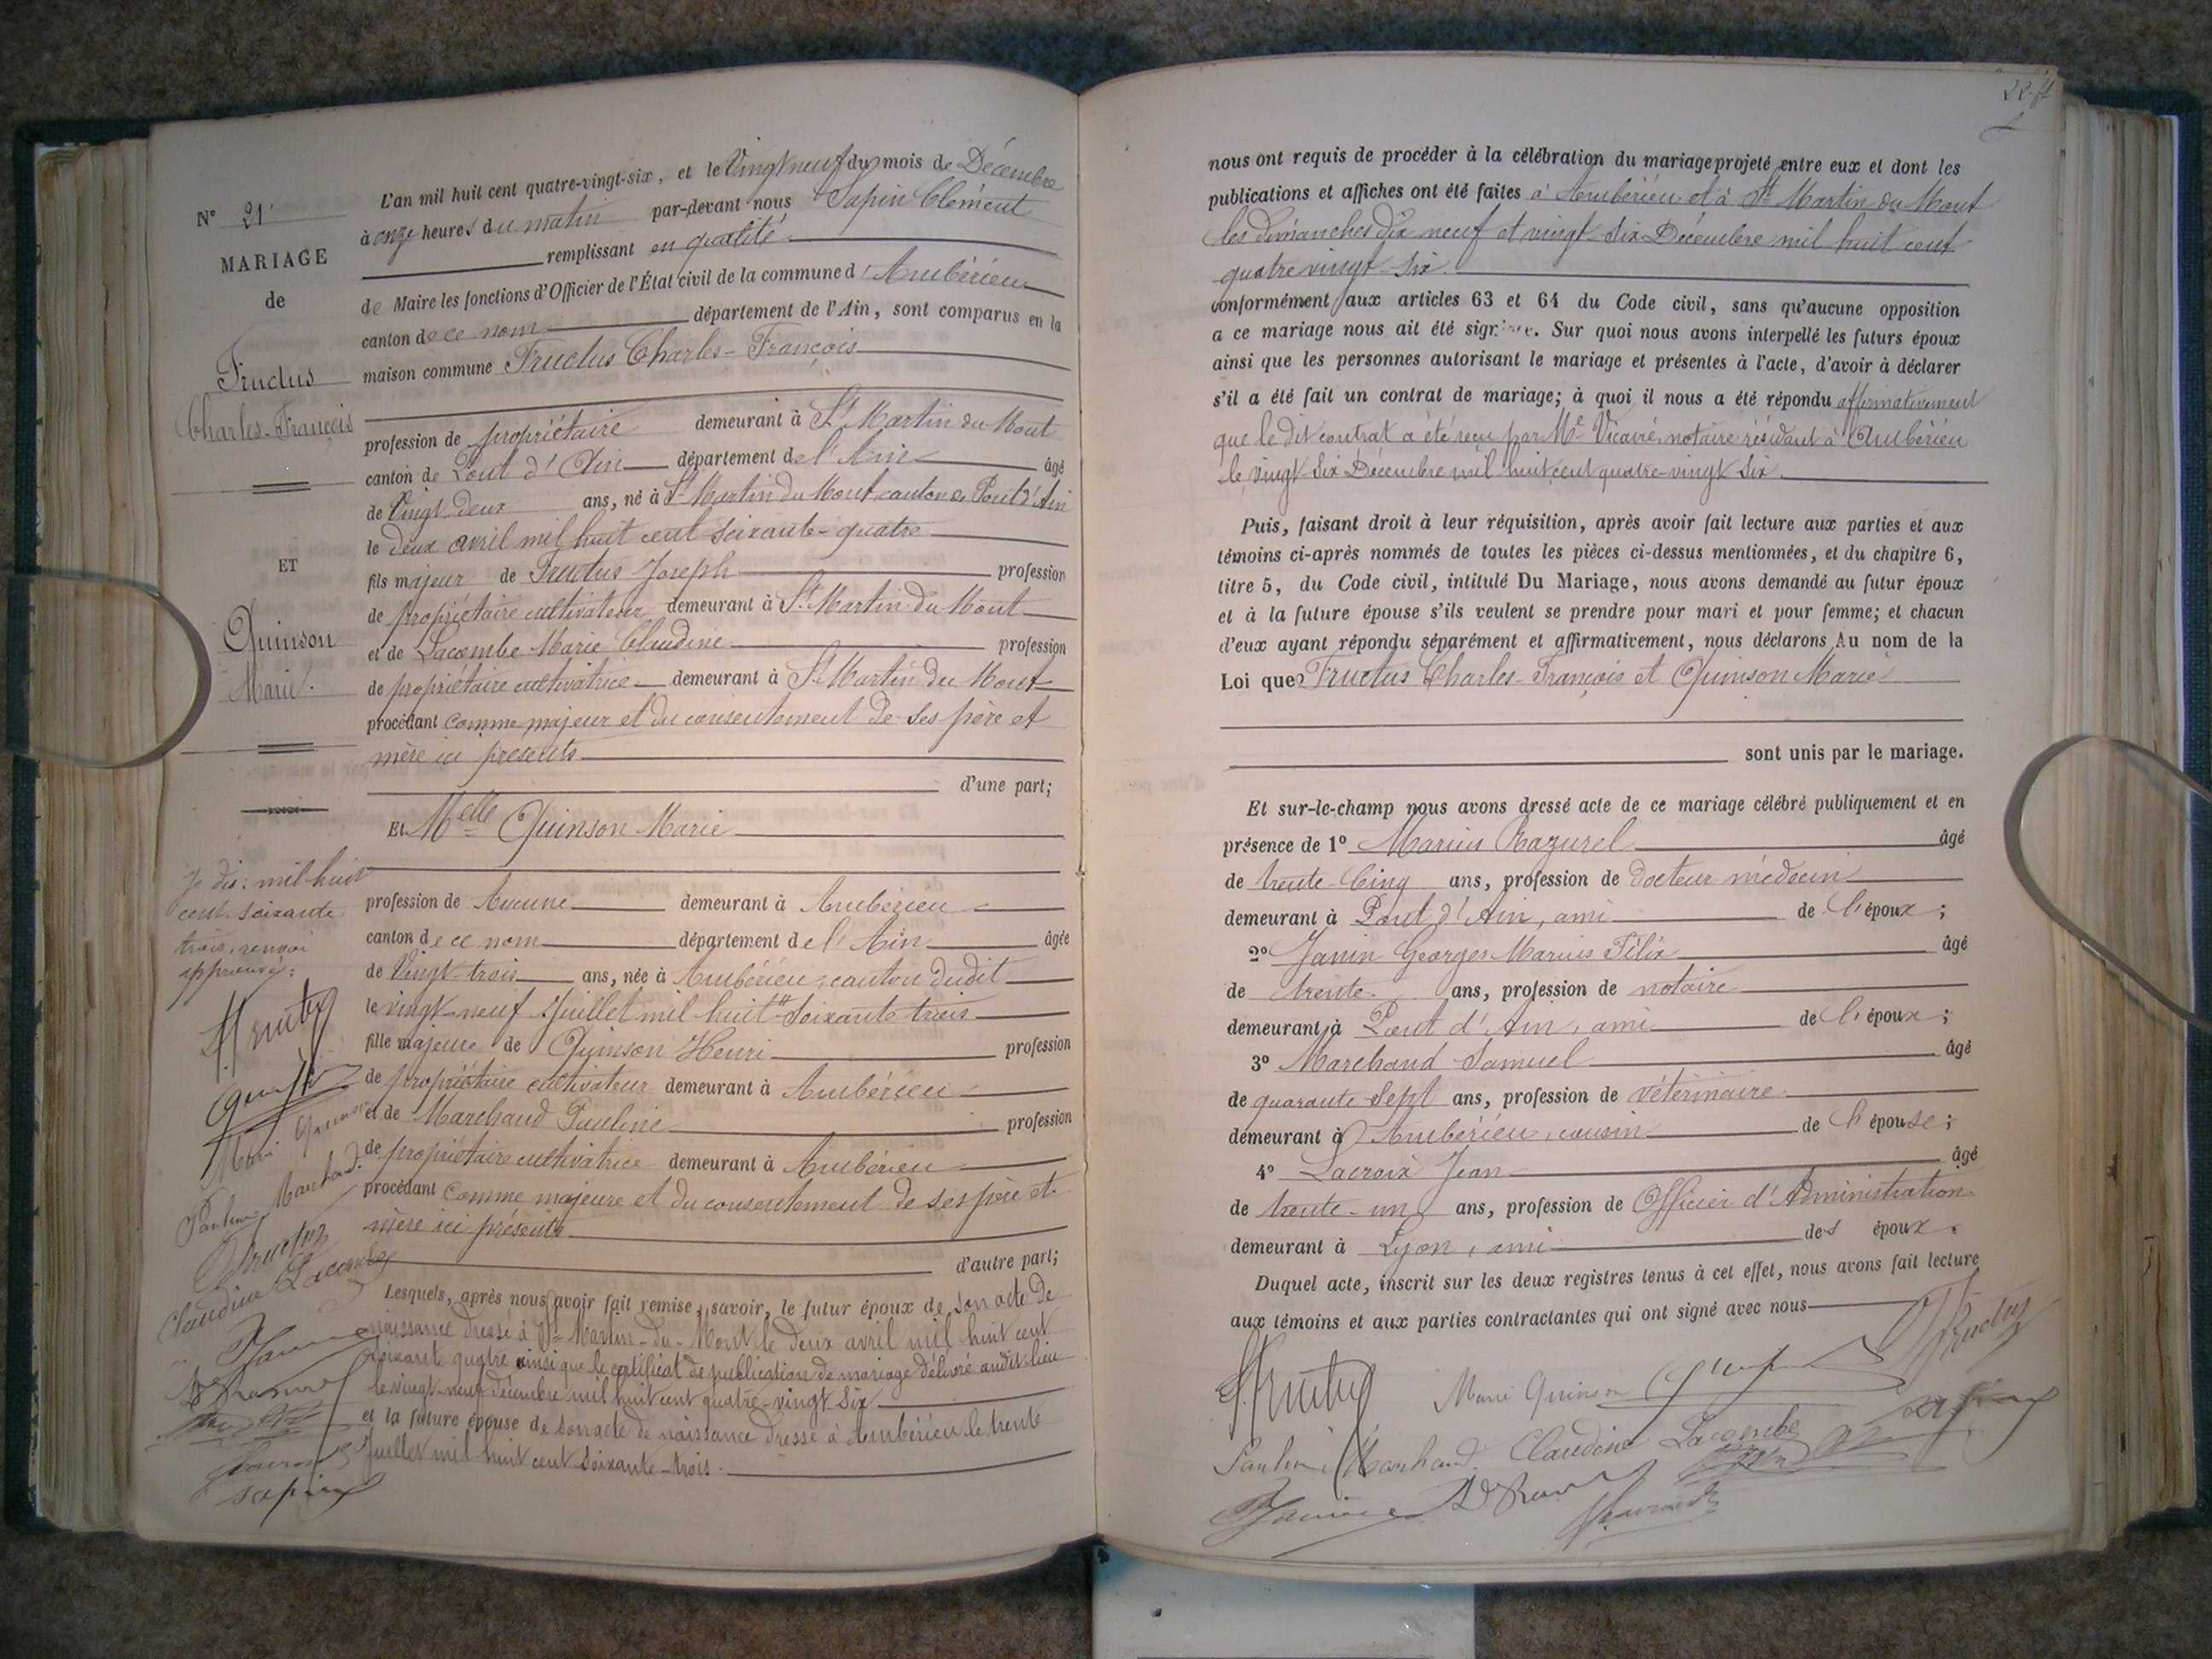 N° 21
MARIAGE
de
Fructus
Charles-François
ET
Quinson
Marie.
Je dis: mil huit
cent soixante
trois, renvoi
approuvé:
Marie Quinson
Pauline Marchand
Fructus
Claudine Lacombe
Sapin
L'an mil huit cent quatre-vingt-six, et le Vingt neuf du mois de Décembre
à onze heures du matin par-devant nous Sapin Clément
remplissant en qualité
de Maire les fonctions d'Officier de l'État civil de la commune d'Ambérieu
canton de ce nom département de l'Ain, sont comparus en la
maison commune Fructus Charles-François
profession de propriétaire demeurant à St Martin du Mont
canton de Pont d'Ain département de l'Ain âgé
de Vingt deux ans, né à St Martin du Mont, canton de Pont d'Ain
le deux avril mil huit cent soixante-quatre
fils majeur de Fructus Joseph profession
de propriétaire cultivateur demeurant à St Martin du Mont
et de Lacombe Marie Claudine profession
de propriétaire cultivatrice demeurant à St Martin du Mont
procédant comme majeur et du consentement de ses père et
mère ici présents
d'une part;
Et Melle Quinson Marie
profession de Aucune demeurant à Ambérieu
canton de ce nom département de l'Ain âgée
de Vingt-trois ans, née à Ambérieu, canton dudit
le vingt-neuf Juillet mil huit # soixante trois
fille majeure de Quinson Henri profession
de propriétaire cultivateur demeurant à Ambérieu
et de Marchand Pauline profession
de propriétaire cultivatrice demeurant à Ambérieu
procédant comme majeure et du consentement de ses père et
mère ici présents
d'autre part;
Lesquels, après nous avoir fait remise, savoir, le futur époux de son acte de
naissance dressé à St-Martin-du-Mont le deux avril mil huit cent
soixante quatre ainsi que le certificat de publication de mariage délivré audit lieu
le vingt-neuf décembre mil huit cent quatre-vingt six
et la future épouse de son acte de naissance dressé à Ambérieu le trente
Juillet mil huit cent soixante-trois.
nous ont requis de procéder à la célébration du mariage projeté entre eux et dont les
publications et affiches ont été faites à Ambérieu et à St Martin du Mont
les dimanches dix neuf et vingt-six Décembre mil huit cent
quatre vingt-six.
conformément aux articles 63 et 64 du Code civil, sans qu'aucune opposition
a ce mariage nous ait été signifiée. Sur quoi nous avons interpellé les futurs époux
ainsi que les personnes autorisant le mariage et présentes à l'acte, d'avoir à déclarer
s'il a été fait un contrat de mariage; à quoi il nous a été répondu affirmativement
que le dit contrat a été reçu par Me Vicaire, notaire résidant à Ambérieu
le vingt-six Décembre mil huit cent quatre-vingt six.
Puis, faisant droit à leur réquisition, après avoir fait lecture aux parties et aux
témoins ci-après nommés de toutes les pièces ci-dessus mentionnées, et du chapitre 6,
titre 5, du Code civil, intitulé Du Mariage, nous avons demandé au futur époux
et à la future épouse s'ils veulent se prendre pour mari et pour femme; et chacun
d'eux ayant répondu séparément et affirmativement, nous déclarons Au nom de la
Loi que Fructus Charles-François et Quinson Marie
sont unis par le mariage.
Et sur-le-champ nous avons dressé acte de ce mariage célébré publiquement et en
présence de 1° Marius Razurel âgé
de trente-Cinq ans, profession de docteur médecin
demeurant à Pont d'Ain, ami de l'époux;
2° Janin Georges Marius Félix âgé
de trente ans, profession de notaire
demeurant à Pont d'Ain, ami de l'époux;
3° Marchand Samuel âgé
de quarante sept ans, profession de vétérinaire
demeurant à Ambérieu, cousin de l'épouse;
4° Lacroix Jean âgé
de trente-un ans, profession de Officier d'Administration
demeurant à Lyon, ami des époux.
Duquel acte, inscrit sur les deux registres tenus à cet effet, nous avons fait lecture
aux témoins et aux parties contractantes qui ont signé avec nous
Fructus
Marie Quinson
Pauline Marchand Claudine Lacombe